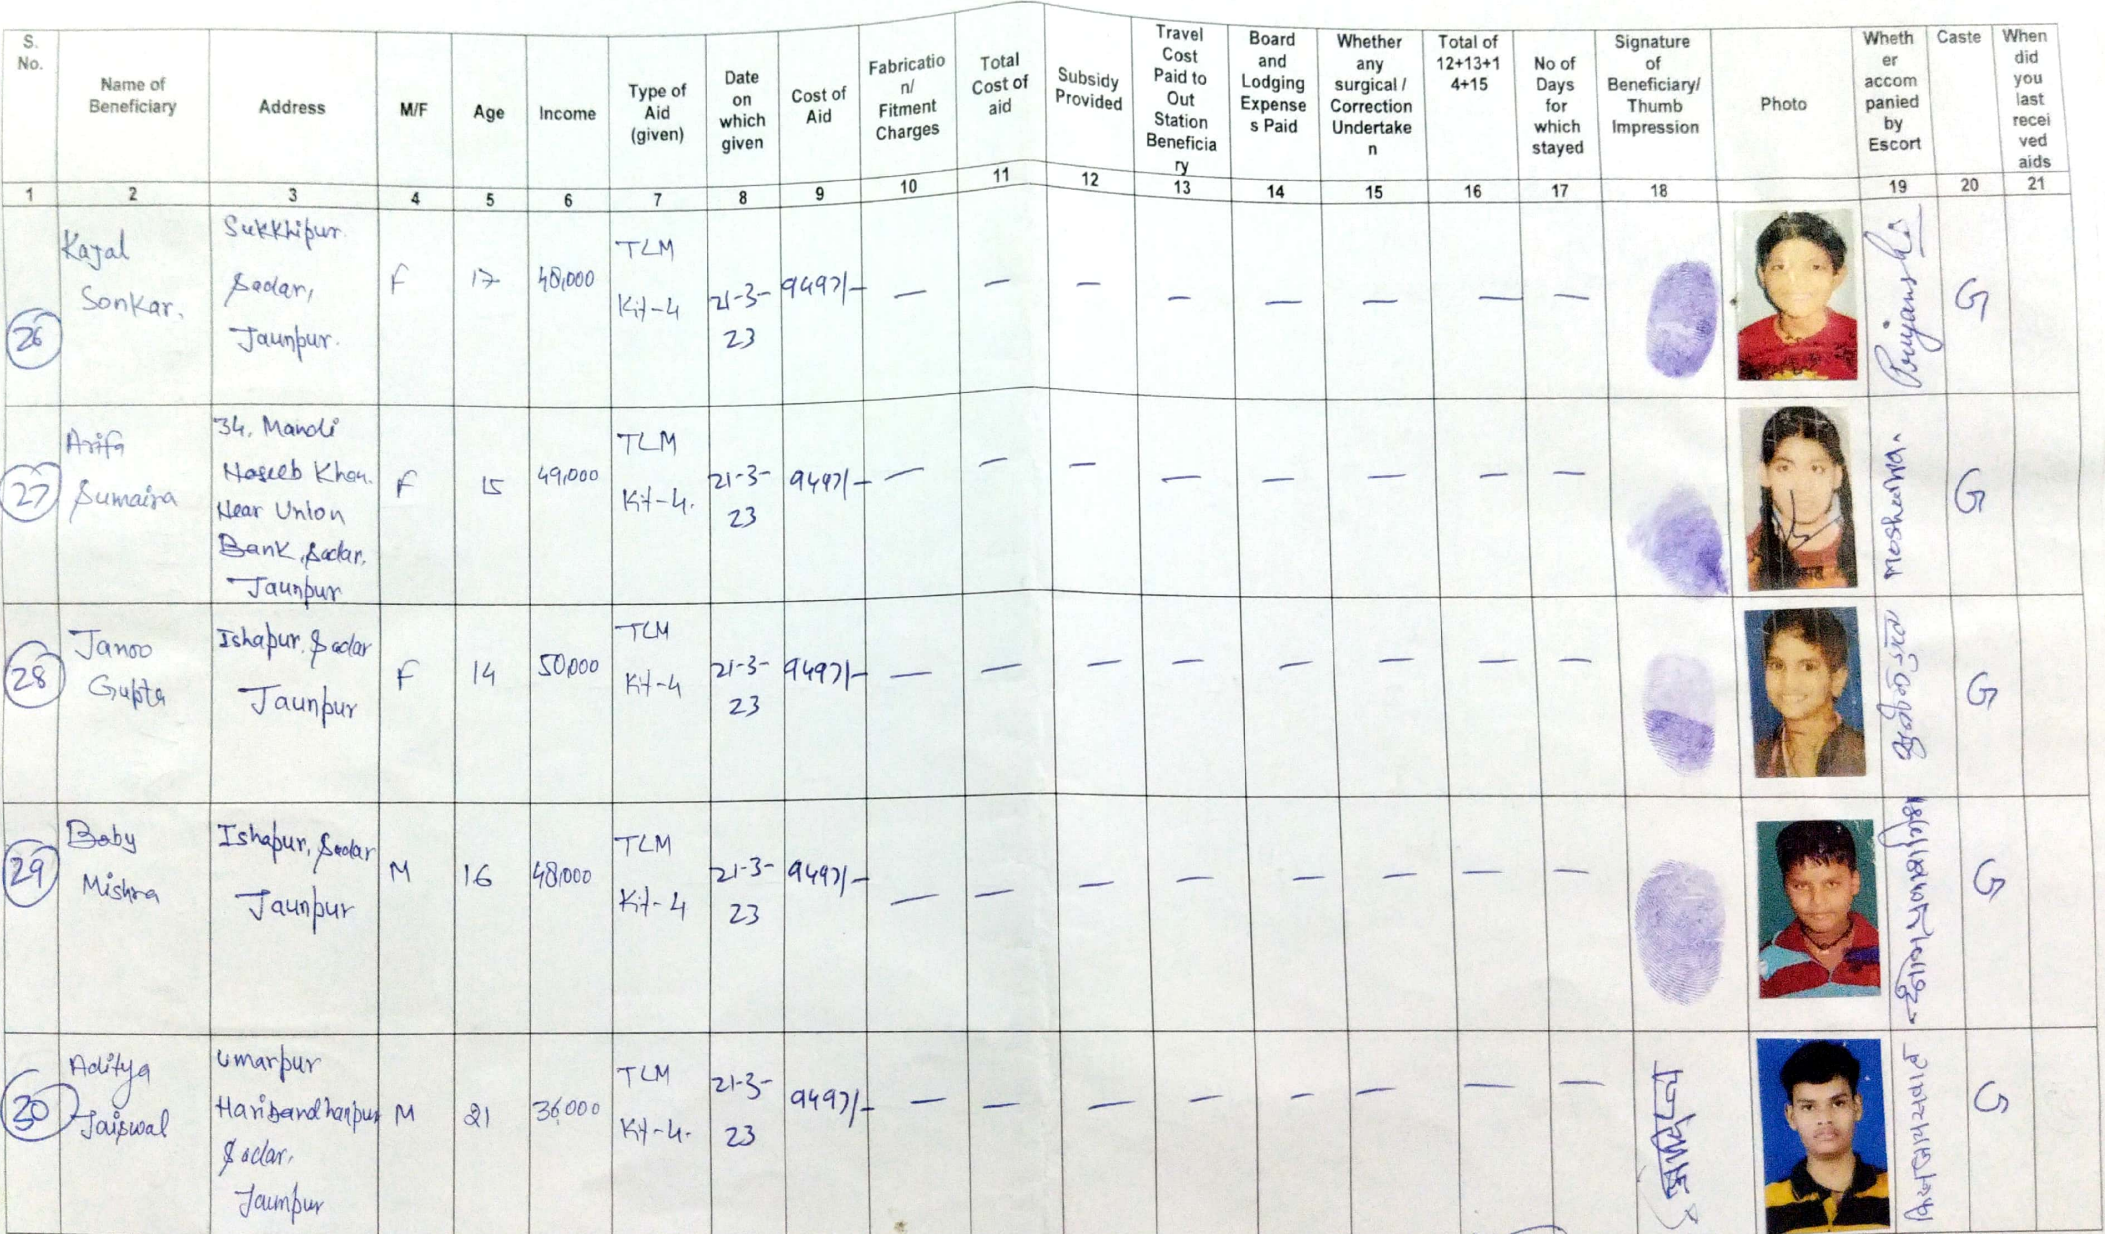 S. No.
Name of Beneficiary
Address
M/F
Age
Income
Type of Aid (given)
Date on which given
Cost of Aid
Fabricatio n/ Fitment Charges
Total Cost of aid
Subsidy Provided
Travel Cost Paid to Out Station Beneficia ry
Board and Lodging Expense s Paid
Whether any surgical / Correction Undertake n
Total of 12+13+1 4+15
No of Days for which stayed
Signature of Beneficiary/ Thumb Impression
Photo
Wheth er accom panied by Escort
Caste
When did you last recei ved aids
1 2 3 4 5 6 7 8 9 10 11 12 13 14 15 16 17 18 19 20 21
26 Kajal Sonkar, Sukkhipur Sadar, Jaunpur. F 17 48,000 TLM Kit-4 21-3-23 9497/- — — — — — — — — Priyanshi G
27 Arifa Sumaira 34, Mandi Naseeb Khan. Near Union Bank, Sadar, Jaunpur F 15 49,000 TLM Kit-4. 21-3-23 9497/- — — — — — — — — G
28 Janoo Gupta Ishapur, Sadar Jaunpur F 14 50,000 TLM Kit-4 21-3-23 9497/- — — — — — — — — G
29 Baby Mishra Ishapur, Sadar Jaunpur M 16 48,000 TLM Kit-4 21-3-23 9497/- — — — — — — — — G
30 Aditya Jaiswal Umarpur Haribandhanpur Sadar, Jaunpur M 21 36,000 TLM Kit-4. 21-3-23 9497/- — — — — — — — — G